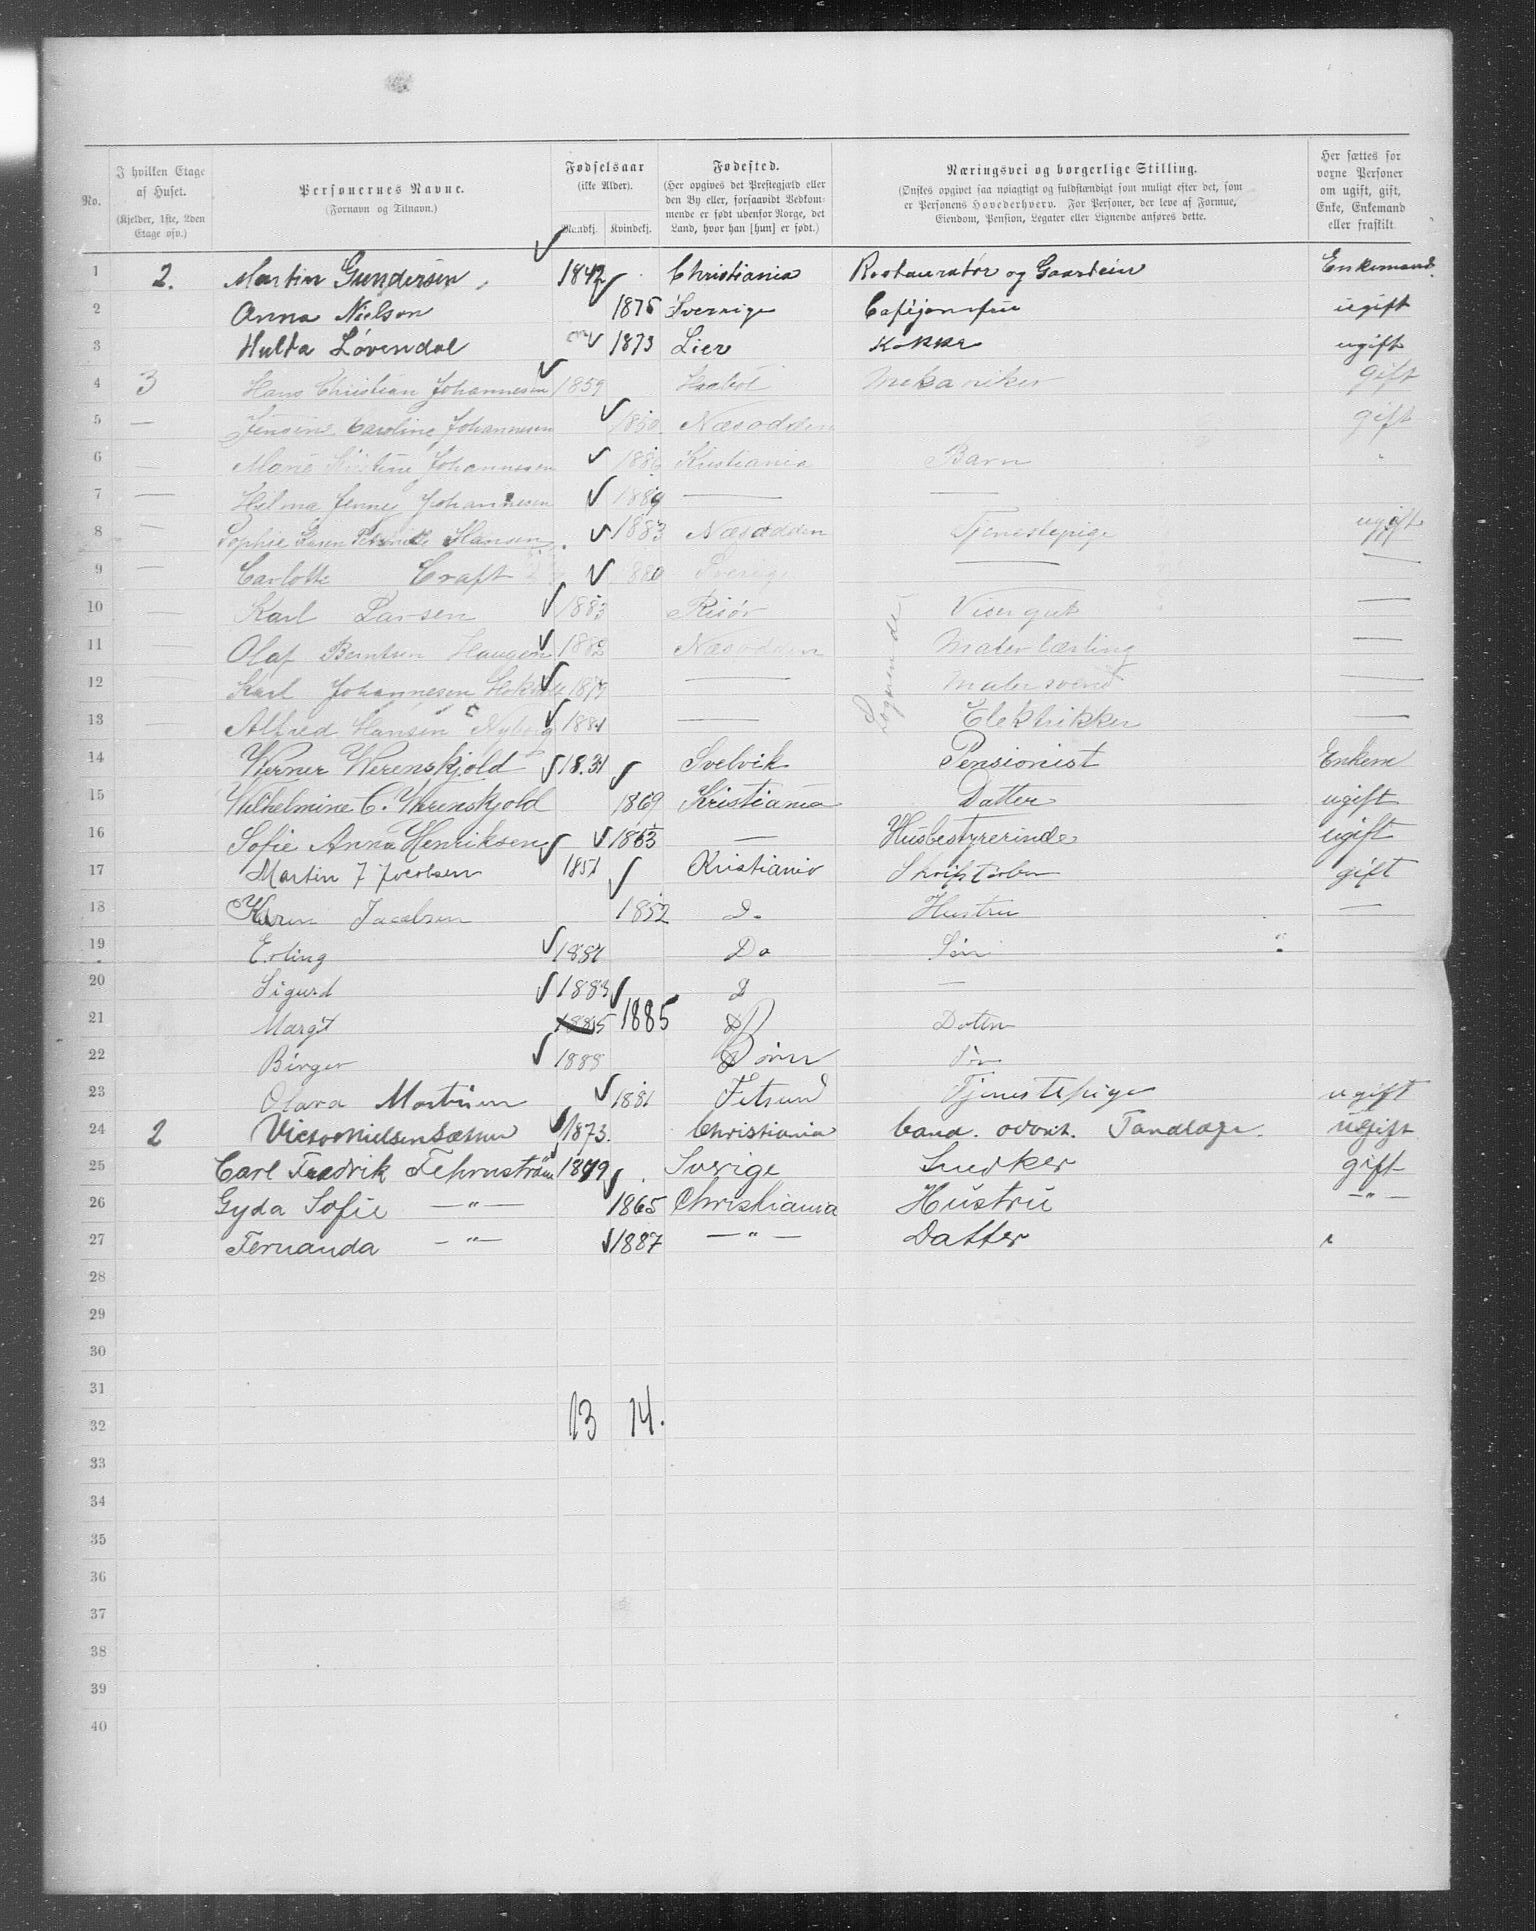 No.
I hvilken Etage af Huset.
(Kjelder, 1ste, 2den Etage osv.)
Personernes Navne.
(Fornavn og Tilnavn.)
Fødselsaar
(ikke Alder).
Mandkj. Kvindekj.
Fødested.
(Her opgives det Prestegjæld eller den By eller, forsaavidt Vedkommende er født udenfor Norge, det Land, hvor han [hun] er født.)
Næringsvei og borgerlige Stilling.
(Ønskes opgivet saa nøiagtigt og fuldstændigt som muligt efter det, som er Personens Hovederhverv. For Personer, der leve af Formue, Eiendom, Pension, Legater eller Lignende anføres dette.
Her sættes for voxne Personer om ugift, gift, Enke, Enkemand eller fraskilt.
1 2. Martin Gundersen 1842 Christiania Restauratør og Gaardeier Enkemand.
2 Anna Nielson 1876 Sverrige Caféjomfru ugift
3 Hulda Lövendal 1873 Lier Kokke ugift
4 3 Hans Christian Johannesen 1859 Mekaniker gift
5 — Caroline Johannesen 1850 Næsodden gift
6 — Marie Kristine Johannesen Kristiania Barn
7 — Helma Jenney Johannesen 1889 — —
8 — Sophie Hansen 1883 Næsodden Tjenestepige ugift
9 — Carlotte Craft 1880 Sverige — —
10 — Karl Larsen 1883 Risør Visergut —
11 — Olaf Berntsen Haugen 1882 Næsodden Malerlærling —
12 — Karl Johannesen 1877 — Malersvend —
13 — Alfred Hansen Nyborg 1881 — Elektrikker —
Logerende
14 Werner Werenskjold 18.31 Svelvik Pensionist Enkem
15 Wilhelmine C. Werenskjold 1869 Kristiania Datter ugift
16 Sofie Anna Henriksen 1863 — Husbestyrerinde ugift
17 Martin J Jacobsen 1851 Kristiania gift
18 Karen Jacobsen 1852 D. Hustru —
19 Erling 1881 Do Søn
20 Sigurd 1883 D —
21 Margit 1885 1885 D Daten
22 Birger 1888 D Søn
Børn
23 Olava 1881 Fetsund Tjenestepige ugift
24 2 Victor Nielsen Sætren 1873. Christiania Cand. odont. Tandlæge. ugift
25 Carl Fredrik Fehrnström 1849 Sverige Snedker gift
26 Gyda Sofie — " — 1865 Christiania Hustru — " —
27 Fernanda — " — 1887 — " — Datter
28
29
30
31
32 13 14.
33
34
35
36
37
38
39
40